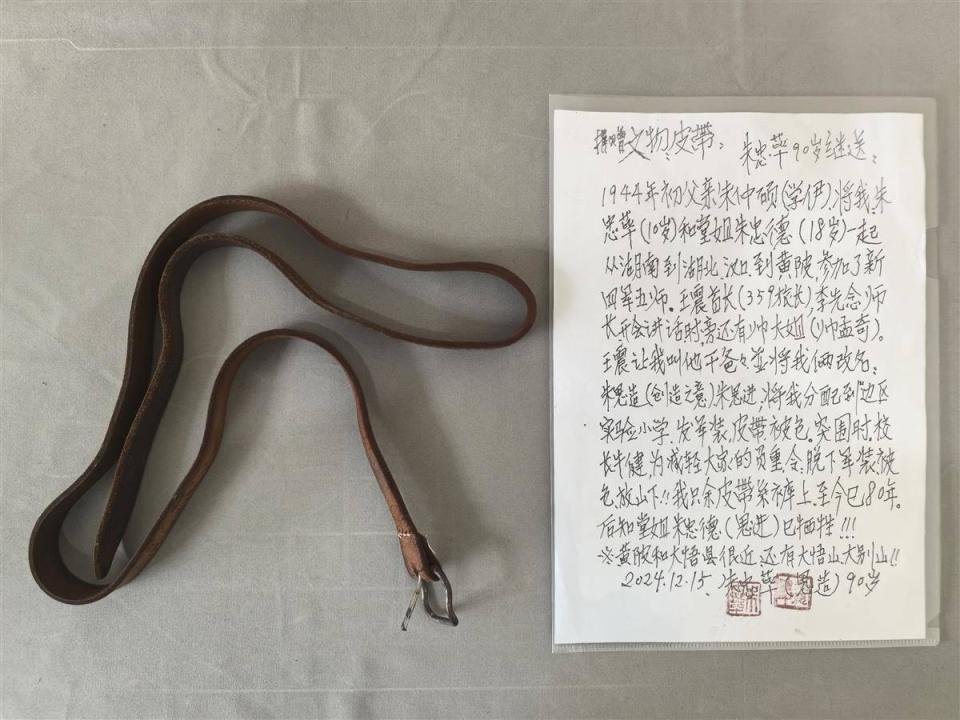 捐赠文物:皮带: 朱忠苹90岁继送:
1944年初父亲朱仲硕(学伊)将我朱
忠苹(10岁)和堂姐朱忠德(18岁)一起
从湖南到湖北,汉口到黄陂参加了新
四军五师。王震首长(359旅长)李先念师
长开会讲话时,旁还有帅大姐(帅孟奇)。
王震让我叫他干爸々並将我俩改名。
朱思造(创造之意)朱思进,将我分配到"边区
实验小学,发军装,皮带,被包。突围时,校
长牛健,为减轻大家的负重,令脱下军装,被
包,放山下!!我只余皮带系裤上,至今已80年。
后知堂姐朱忠德(思进)已牺牲!!!
※黄陂和大悟县很近,还有大悟山,大别山!!
2024.12.15,朱忠苹(思造)90岁